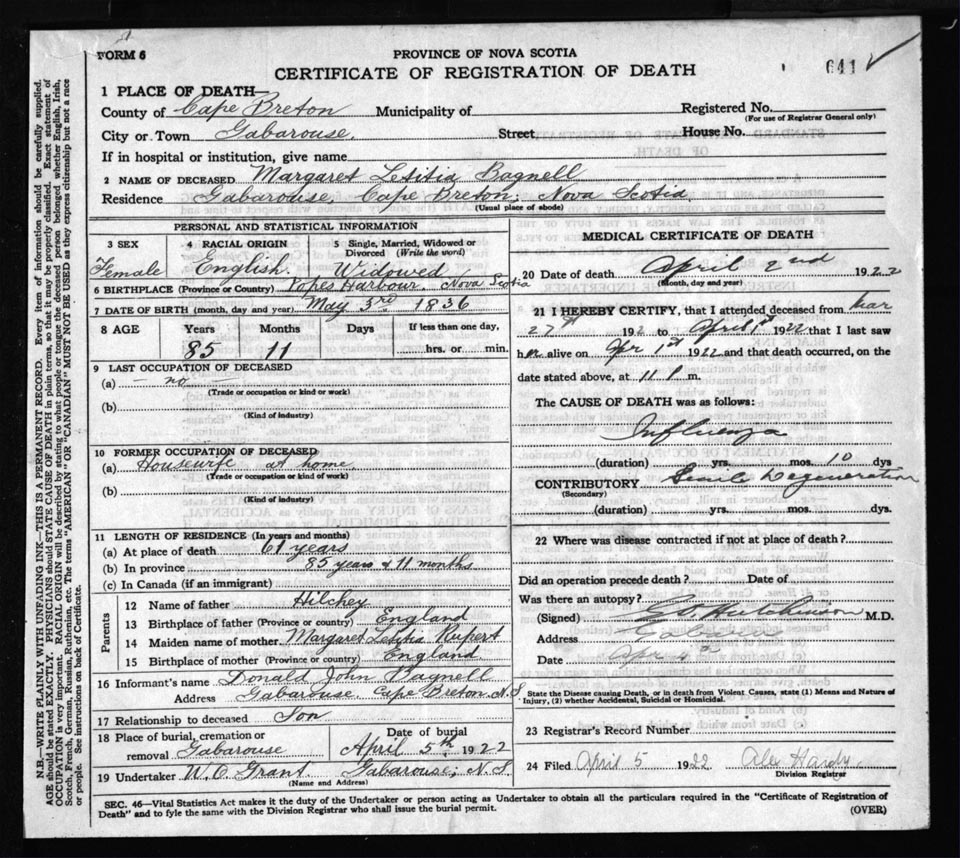 FORM 6
PROVINCE OF NOVA SCOTIA
CERTIFICATE OF REGISTRATION OF DEATH
641
1 PLACE OF DEATH—
County of Cape Breton Municipality of Registered No.
(For use of Registrar General only)
City or Town Gabarouse. Street House No.
If in hospital or institution, give name
2 NAME OF DECEASED Margaret Letitia Bagnell
Residence Gabarouse, Cape Breton, Nova Scotia
(Usual place of abode)
PERSONAL AND STATISTICAL INFORMATION
3 SEX 4 RACIAL ORIGIN Single, Married, Widowed or
Divorced (Write the word)
Female English. Widowed
6 BIRTHPLACE (Province or Country) Popes Harbour, Nova Scotia
7 DATE OF BIRTH (month, day and year) May 3rd 1836
8 AGE Years Months Days If less than one day,
85 11 hrs. or min.
9 LAST OCCUPATION OF DECEASED
(a) — no —
(Trade or occupation or kind or work)
(b)
(Kind of industry)
10 FORMER OCCUPATION OF DECEASED
(a) Housewife at home
(Trade or occupation or kind of work)
(b)
(Kind of industry)
11 LENGTH OF RESIDENCE (In years and months)
(a) At place of death 61 years
(b) In province 85 years & 11 months
(c) In Canada (if an immigrant)
Parents
12 Name of father Hilchey
13 Birthplace of father (Province or country) England
14 Maiden name of mother Margaret Letitia Rupert
15 Birthplace of mother (Province or country) England
16 Informant's name Donald John Bagnell
Address Gabarouse, Cape Breton N.S
17 Relationship to deceased Son
18 Place of burial, cremation or Date of burial
removal Gabarouse April 5th 1922
19 Undertaker W.C. Grant Gabarouse, N.S
(Name and Address)
MEDICAL CERTIFICATE OF DEATH
20 Date of death April 2nd 1922
(Month, day and year)
21 I HEREBY CERTIFY, that I attended deceased from
27th 192 to April 1st 1922 that I last saw
her alive on Apr 1st 1922 and that death occurred, on the
date stated above, at 11 P. m.
The CAUSE OF DEATH was as follows:
Influenza
(duration) yrs. mos. 10 dys
CONTRIBUTORY Senile Degeneration
(Secondary)
(duration) yrs. mos. dys.
22 Where was disease contracted if not at place of death?
Did an operation precede death? Date of
Was there an autopsy?
(Signed) Hutchinson M.D.
Address
Date Apr 4th
State the Disease causing Death, or in death from Violent Causes, state (1) Means and Nature of
Injury, (2) whether Accidental, Suicidal or Homicidal.
23 Registrar's Record Number
24 Filed April 5 1922 Alex Hardy
Division Registrar
SEC. 46—Vital Statistics Act makes it the duty of the Undertaker or person acting as Undertaker to obtain all the particulars required in the "Certificate of Registration of
Death" and to fyle the same with the Division Registrar who shall issue the burial permit. (OVER)
N.B.—WRITE PLAINLY WITH UNFADING INK—THIS IS A PERMANENT RECORD. Every item of information should be carefully supplied.
AGE should be stated EXACTLY. PHYSICIANS should STATE CAUSE OF DEATH in plain terms, so that it may be properly classified. Exact statement of
OCCUPATION is very important. RACIAL ORIGIN will be described by stating to what people or tongue the deceased person belonged whether English, Irish,
Scotch, French, German, Russian, Ruthenian, etc. The terms "AMERICAN" OR "CANADIAN" MUST NOT BE USED as they express citizenship but not a race
or people. See instructions on back of Certificate.